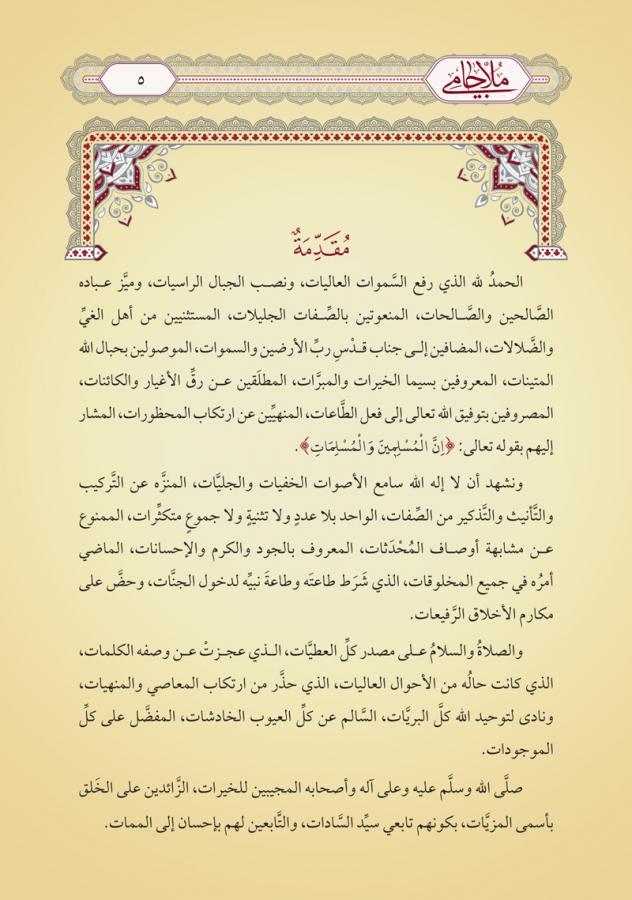 مُلَّا جَامِي
٥
مُقَدِّمَةٌ
الحمدُ لله الذي رفع السَّموات العاليات، ونصب الجبال الراسيات، وميَّز عباده
الصَّالحين والصَّالحات، المنعوتين بالصِّفات الجليلات، المستثنيين من أهل الغيِّ
والضَّلالات، المضافين إلى جناب قدْسِ ربِّ الأرضين والسموات، الموصولين بحبال الله
المتينات، المعروفين بسيما الخيرات والمبرَّات، المطلَقين عن رقِّ الأغيار والكائنات،
المصروفين بتوفيق الله تعالى إلى فعل الطَّاعات، المنهيِّين عن ارتكاب المحظورات، المشار
إليهم بقوله تعالى: ﴿اِنَّ الْمُسْلِمِينَ وَالْمُسْلِمَاتِ﴾.
ونشهد أن لا إله الله سامع الأصوات الخفيات والجليَّات، المنزَّه عن التَّركيب
والتَّأنيث والتَّذكير من الصِّفات، الواحد بلا عددٍ ولا تثنيةٍ ولا جموعٍ متكثِّرات، الممنوع
عن مشابهة أوصاف المُحْدَثات، المعروف بالجود والكرم والإحسانات، الماضي
أمرُه في جميع المخلوقات، الذي شَرَط طاعتَه وطاعةَ نبيِّه لدخول الجنَّات، وحضَّ على
مكارم الأخلاق الرَّفيعات.
والصلاةُ والسلامُ على مصدر كلِّ العطيَّات، الذي عجزتْ عن وصفه الكلمات،
الذي كانت حالُه من الأحوال العاليات، الذي حذَّر من ارتكاب المعاصي والمنهيات،
ونادى لتوحيد الله كلَّ البريَّات، السَّالم عن كلِّ العيوب الخادشات، المفضَّل على كلِّ
الموجودات.
صلَّى الله وسلَّم عليه وعلى آله وأصحابه المجيبين للخيرات، الزَّائدين على الخَلق
بأسمى المزيَّات، بكونهم تابعي سيِّد السَّادات، والتَّابعين لهم بإحسان إلى الممات.